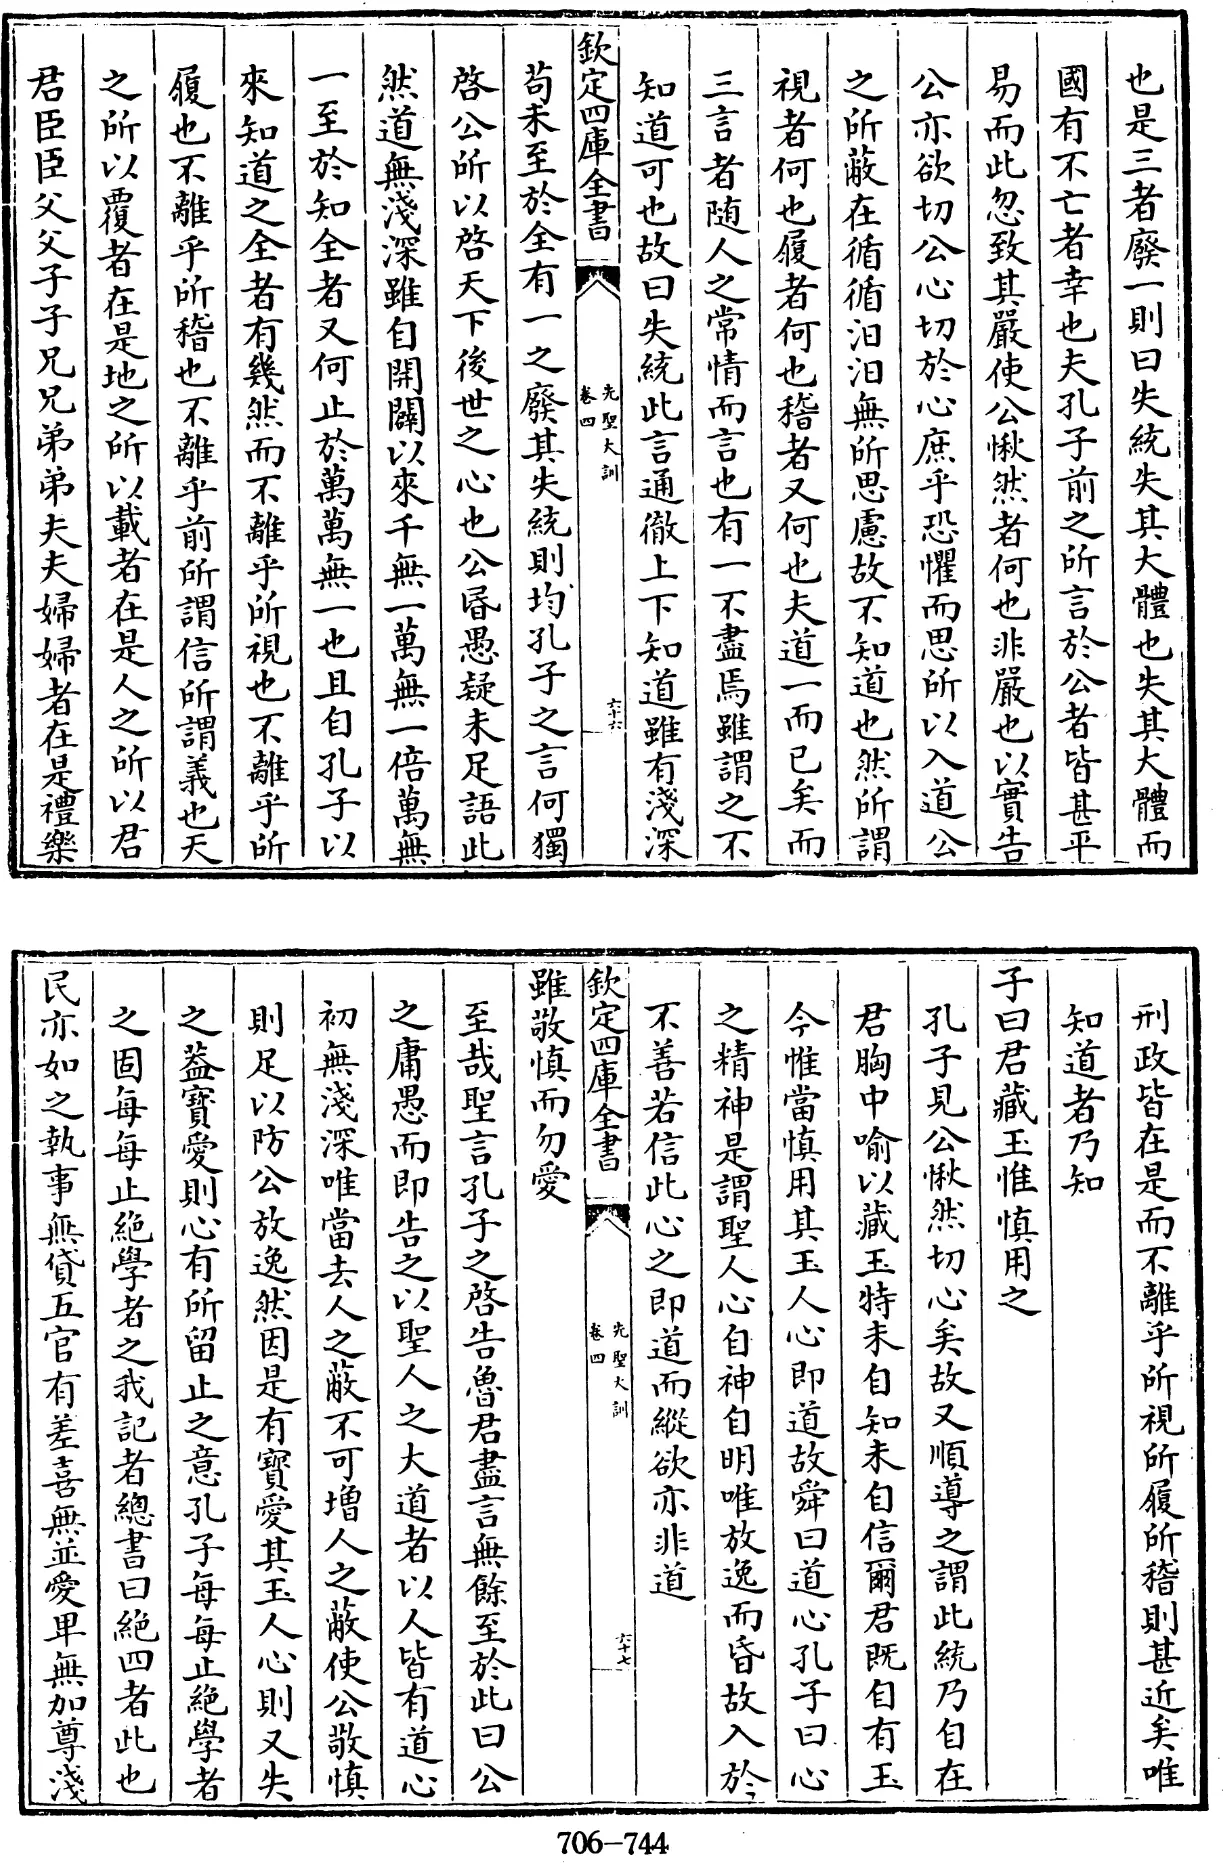 也是三者廢一則曰失統失其大體也失其大體而
國有不亡者幸也夫孔子前之所言於公者皆甚平
易而此忽致其嚴使公愀然者何也非嚴也以實告
公亦欲切公心切於心庶乎恐懼而思所以入道公
之所蔽在循循汩汩無所思慮故不知道也然所謂
視者何也履者何也稽者又何也夫道一而已矣而
三言者隨人之常情而言也有一不盡焉雖謂之不
知道可也故曰失統此言通徹上下知道雖有淺深
欽定四庫全書
先聖大訓
卷四
六十六
苟未至於全有一之廢其失統則均孔子之言何獨
啓公所以啓天下後世之心也公昬愚疑未足語此
然道無淺深雖自開闢以來千無一萬無一倍萬無
一至於知全者又何止於萬萬無一也且自孔子以
來知道之全者有幾然而不離乎所視也不離乎所
履也不離乎所稽也不離乎前所謂信所謂義也天
之所以覆者在是地之所以載者在是人之所以君
君臣臣父父子子兄兄弟弟夫夫婦婦者在是禮樂
刑政皆在是而不離乎所視所履所稽則甚近矣唯
知道者乃知
子曰君藏玉惟慎用之
孔子見公愀然切心矣故又順導之謂此統乃自在
君胸中喻以藏玉特未自知未自信爾君既自有玉
今惟當慎用其玉人心即道故舜曰道心孔子曰心
之精神是謂聖人心自神自明唯放逸而昏故入於
不善若信此心之即道而縱欲亦非道
欽定四庫全書
先聖大訓
卷四
六十七
雖敬慎而勿愛
至哉聖言孔子之啓告魯君盡言無餘至於此曰公
之庸愚而即告之以聖人之大道者以人皆有道心
初無淺深唯當去人之蔽不可增人之蔽使公敬慎
則足以防公放逸然因是有寶愛其玉人心則又失
之蓋寶愛則心有所留止之意孔子每每止絶學者
之固每每止絶學者之我記者總書曰絶四者此也
民亦如之執事無貸五官有差喜無並愛卑無加尊淺
706-744